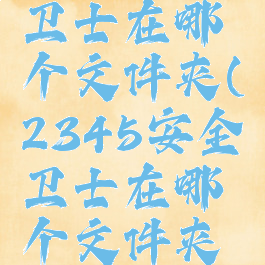 卫士在哪
个文件夹(
2345安全
卫士在哪
个文件夹